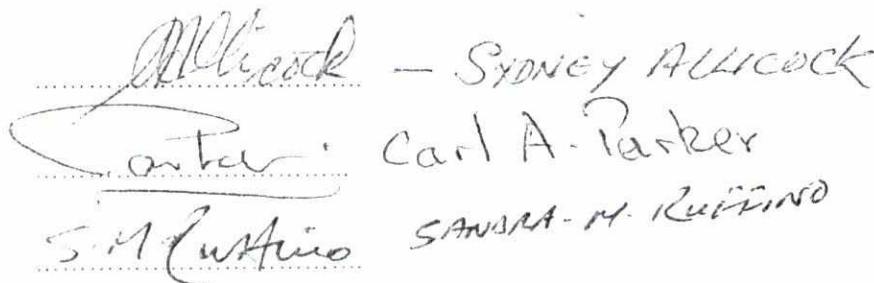 Allicock – SYDNEY ALLICOCK
Parker Carl A. Parker
S. M Ruffino SANDRA-M. RUFFINO